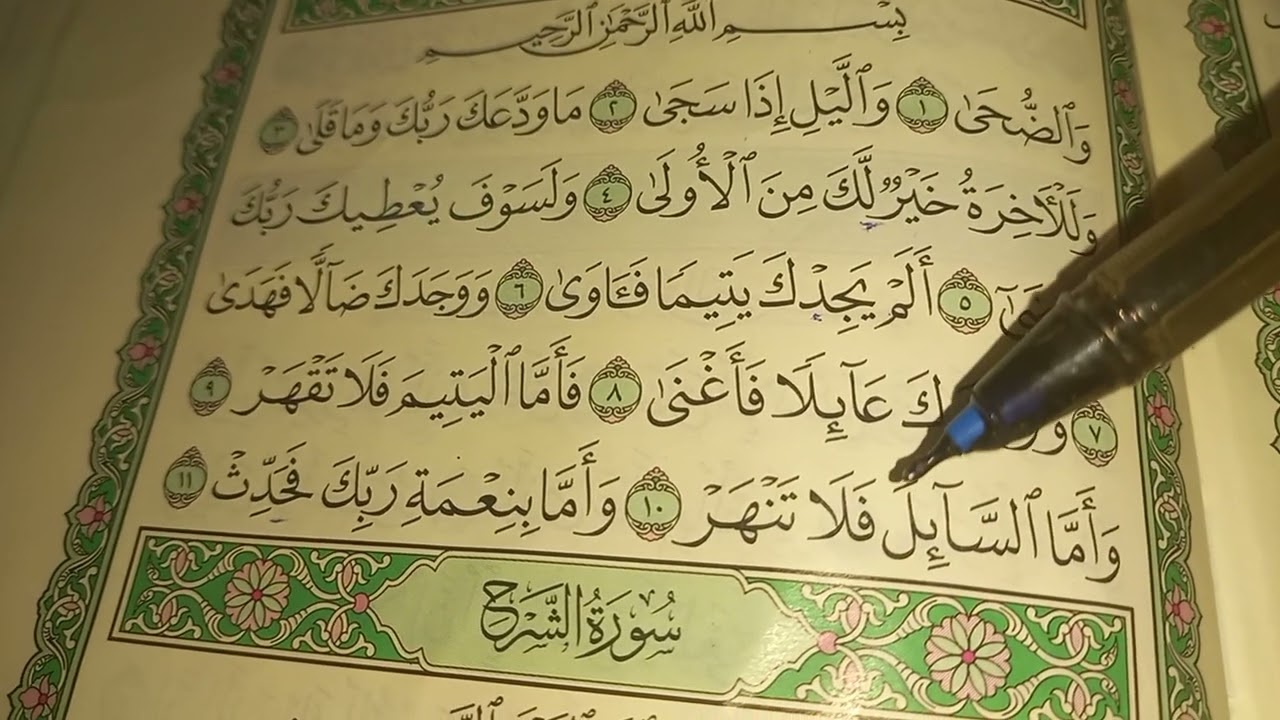 بِسْمِ ٱللَّهِ ٱلرَّحْمَٰنِ ٱلرَّحِيمِ
وَٱلضُّحَىٰ ١ وَٱلَّيْلِ إِذَا سَجَىٰ ٢ مَا وَدَّعَكَ رَبُّكَ وَمَا قَلَىٰ ٣
وَلَلْأَخِرَةُ خَيْرٌ لَّكَ مِنَ ٱلْأُولَىٰ ٤ وَلَسَوْفَ يُعْطِيكَ رَبُّكَ
٥ أَلَمْ يَجِدْكَ يَتِيمًا فَـَٔاوَىٰ ٦ وَوَجَدَكَ ضَآلًّا فَهَدَىٰ
٧ عَآئِلًا فَأَغْنَىٰ ٨ فَأَمَّا ٱلْيَتِيمَ فَلَا تَقْهَرْ ٩
وَأَمَّا ٱلسَّآئِلَ فَلَا تَنْهَرْ ١٠ وَأَمَّا بِنِعْمَةِ رَبِّكَ فَحَدِّثْ ١١
سُورَةُ الشَّرْحِ